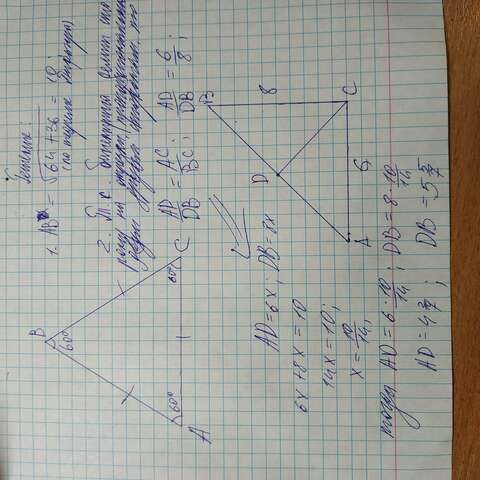 Решение:
1. AB = √64+36 = 10;
(по теореме Пифагора)
2. Т.к. биссектриса делит сто
рону на отрезки, пропорциональные
двум другим сторонам, то
AD/DB = AC/BC; AD/DB = 6/8;
B
60°
60°
60°
A
C
B
8
D
C
A
6
AD=6x; DB=8x
6x+8x=10
14x=10;
x=10/14;
тогда AD=6·10/14; DB=8·10/14
AD=4 2/7; DB=5 5/7